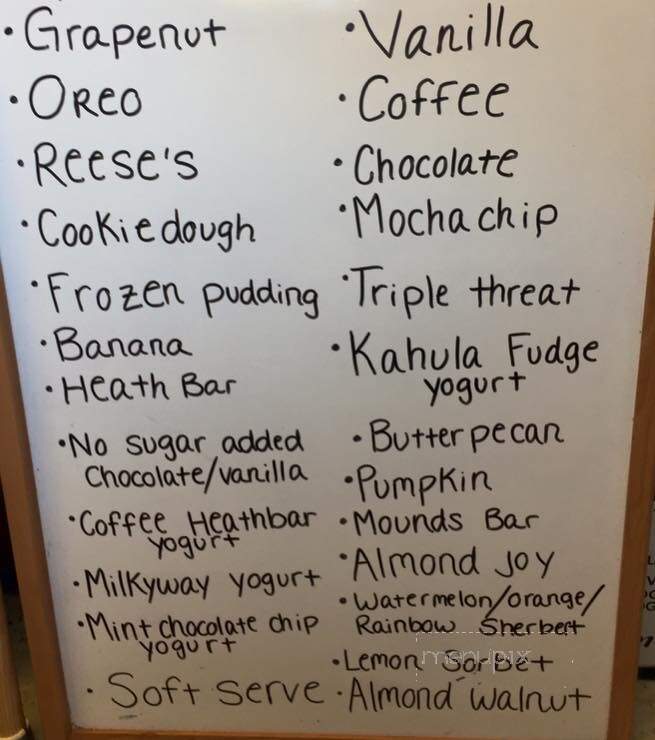 • Grapenut
• Oreo
• Reese's
• Cookie dough
• Frozen pudding
• Banana
• Heath Bar
• No sugar added
Chocolate/vanilla
• Coffee Heathbar
yogurt
• Milkyway yogurt
• Mint chocolate chip
yogurt
• Soft serve
• Vanilla
• Coffee
• Chocolate
• Mocha chip
• Triple threat
• Kahula Fudge
yogurt
• Butter pecan
• Pumpkin
• Mounds Bar
• Almond Joy
• Watermelon/orange/
Rainbow Sherbert
• Lemon Sorbet
• Almond walnut
menupix